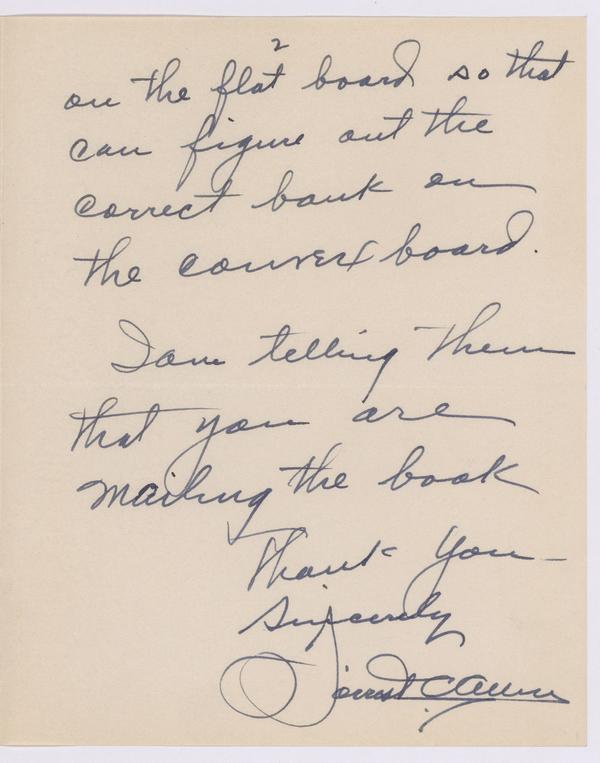 2
on the flat board so that
can figure out the
correct bank on
the convex board.
I am telling them
that you are
mailing the book
Thank You -
Sincerely
Forrest C Allen